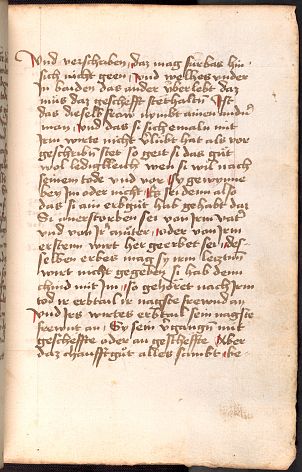 Und verschaben daz mag fürbas hin
sich nicht geen Und welhes under
In baiden das ander überlebt daz
müs daz geschefft stet haltn Ist
das dieselb fraw nymbt ainen andn
man Und das si sich emaln mit
Irm wirte nicht verübt hat als vor
geschribn stet so geit si das gut
wol lediclleich wem si wil nach
seinem tode und vor sy gewynne
bey Im oder nicht Es sei denn also
das si ain erbgüt hab gehabt daz
Si anerstorben sei von Irm vatter
und von Ir muter oder von Irm
ersten wirt her geerbet sei des
selben erbes mag sy irm lezten
wirt nicht gegeben si hab denn
chind mit Im so gehöret nach Irm
tod ir erbtail ir nagste frewnd an
Und Irs wirtes erbtail sein nagste
frewnt an Er sein vergangen mit
geschefte oder an geschefte Aber
daz chaufftgut alles sambt be